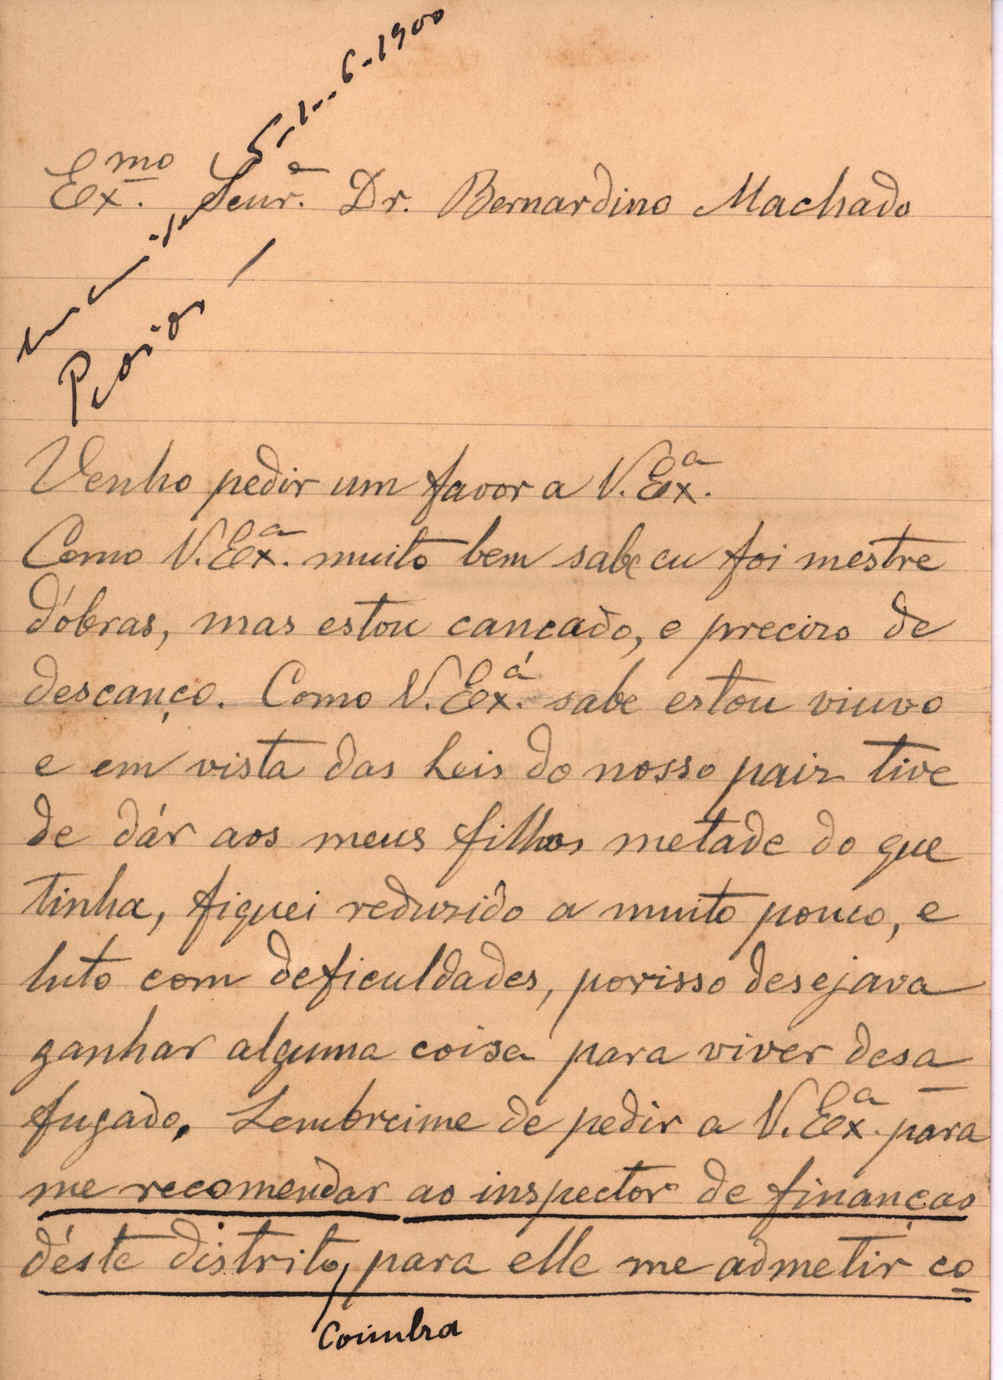 5-1-6-1900
Ex.mo Senr. Dr. Bernardino Machado
Venho pedir um favor a V. Ex.a
Como V. Ex.a muito bem sabe eu foi mestre
d'óbras, mas estou cançado, e preciro de
descanço. Como V. Ex.á sabe estou viuvo
e em vista das Leis do nosso paiz tive
de dár aos meus filhos metade do que
tinha, fiquei reduzido a muito pouco, e
luto com deficuldades, porisso desejava
ganhar alguma coisa para viver desa
fugado. Lembreime de pedir a V. Ex.a para
me recomendar ao inspector de finanças
déste distrito, para elle me admetir co
Coimbra